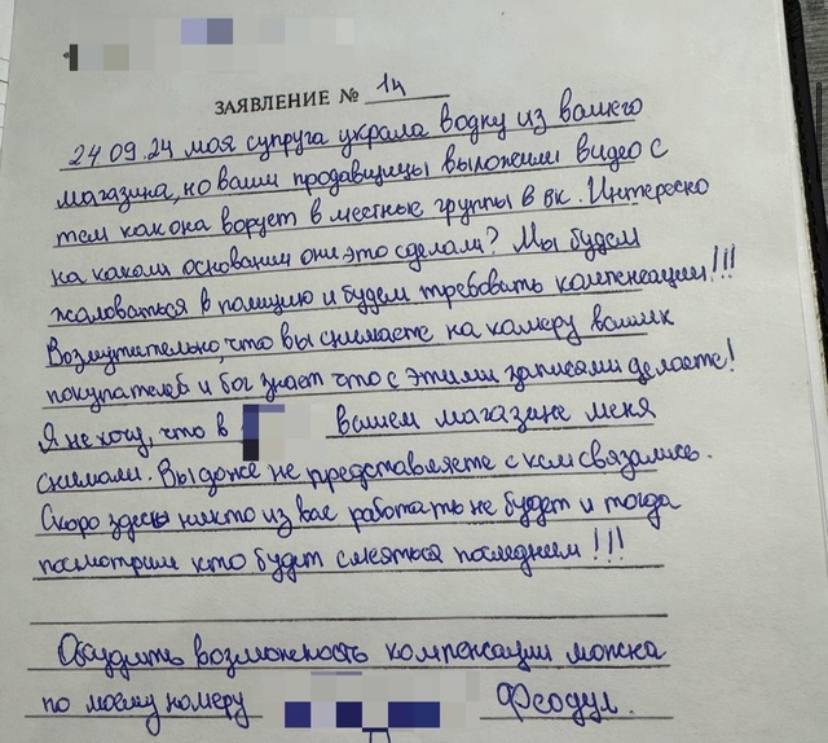 ЗАЯВЛЕНИЕ № 14
24.09.24 моя супруга украла водку из вашего
магазина, но ваши продавщицы выложили видео с
тем как она ворует в местные группы в вк. Интересно
на каком основании они это сделали? Мы будем
жаловаться в полицию и будем требовать компенсации!!!
Возмутительно, что вы снимаете на камеру ваших
покупателей и бог знает что с этими записями делаете!
Я не хочу, что в вашем магазине меня
снимали. Вы даже не представляете с кем связались.
Скоро здесь никто из вас работать не будет и тогда
посмотрим кто будет смеяться последним!!!
Обсудить возможность компенсации можно
по моему номеру Феодул.